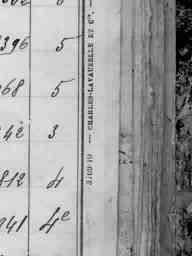 396 5
68 5
42 3
812 4
941 4e
— CHARLES-LAVAUZELLE ET Cie. —